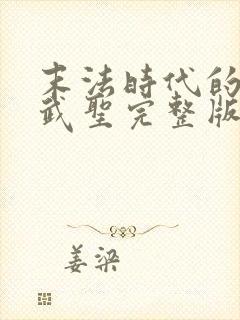 末法時代的
武聖完整版
姜梁